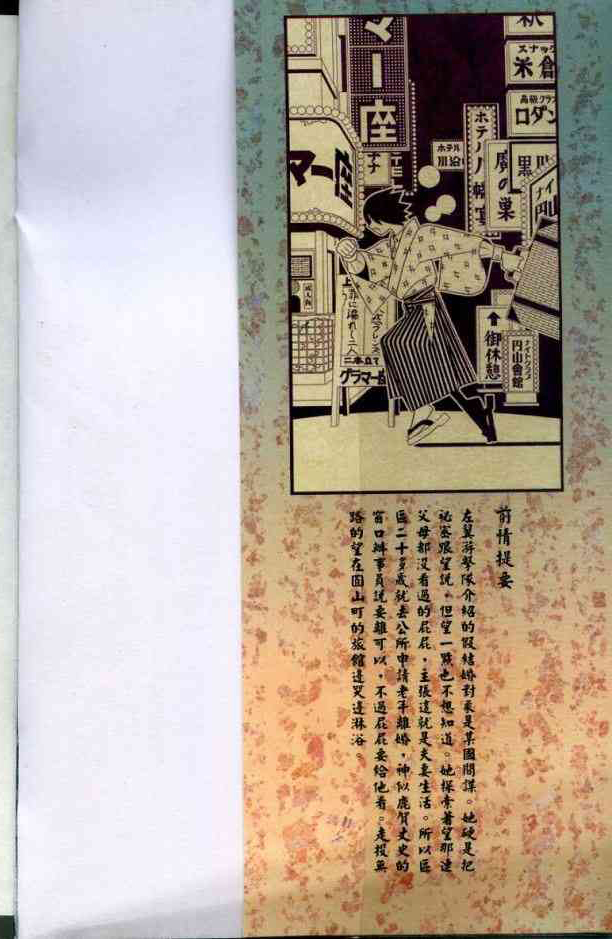 マー座
マー座
スナック
米倉
高級クラブ
ロダン
ホテル
川沿
魔の巣
黒
ナイト
円山
上
罪に濡れし二人
二本立て
グラマー座
御休憩
ナイトクラブ
円山會館
前情提要
左翼游擊隊介紹的假結婚對象是某國間諜。她硬是把
祕密跟望說,但望一點也不想知道。她探索著望那連
父母都沒看過的屁屁,主張這就是夫妻生活。所以區
區二十多歲就去公所申請老年離婚,神似鹿賀丈史的
窗口辦事員說要離可以,不過屁屁要給他看。走投無
路的望在圓山町的旅館邊哭邊淋浴。